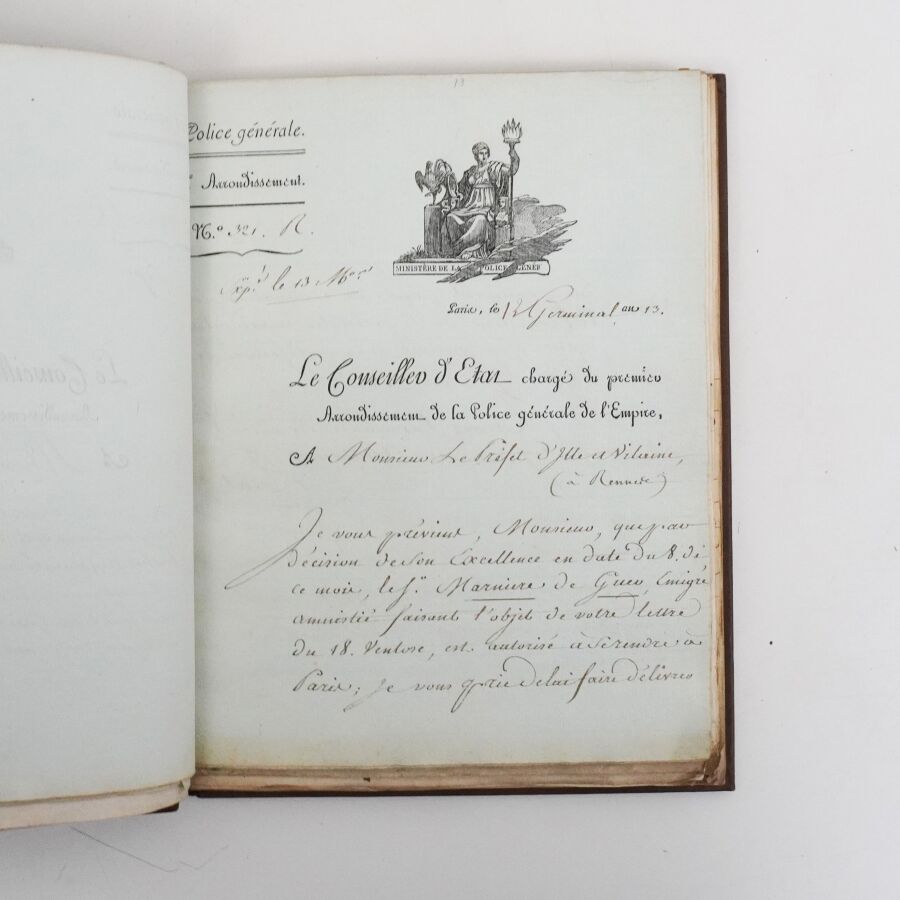 13
Police générale.
Arrondissement.
N.º 321. R.
Exp.é le 13
MINISTÈRE DE LA POLICE GÉNÉR
Paris, le 12 Germinal an 13.
Le Conseiller d'Etat chargé du premier
Arrondissement de la Police générale de l'Empire,
A Monsieur Le Préfet d'Ille et Vilaine,
(à Rennes)
Je vous préviens, Monsieur, que par
Décision de Son Excellence en date du 8. de
ce mois, le Sr. Marnière de Guer, Emigré
amnistié faisant l'objet de votre lettre
du 18. Ventose, est autorisé à se rendre à
Paris; Je vous prie de lui faire délivrer